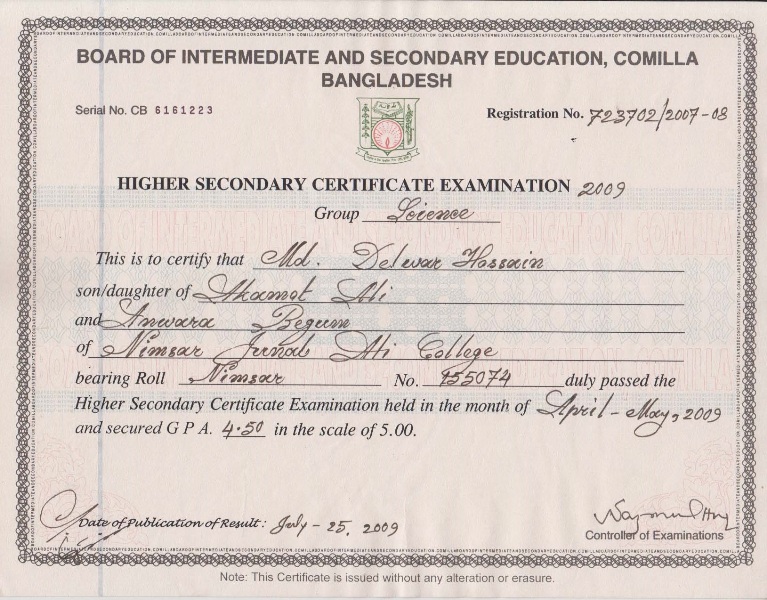 BOARD OF INTERMEDIATE AND SECONDARY EDUCATION, COMILLA
BANGLADESH
Serial No. CB 6161223
Registration No. 723702/2007-08
HIGHER SECONDARY CERTIFICATE EXAMINATION 2009
Group Science
This is to certify that Md. Delwar Hossain
son/daughter of Akamot Ali
and Anwara Begum
of Nimsar Junab Ali College
bearing Roll Nimsar No. 155074 duly passed the
Higher Secondary Certificate Examination held in the month of April-May, 2009
and secured G P A. 4.50 in the scale of 5.00.
Date of Publication of Result: July - 25, 2009
Controller of Examinations
Note: This Certificate is issued without any alteration or erasure.